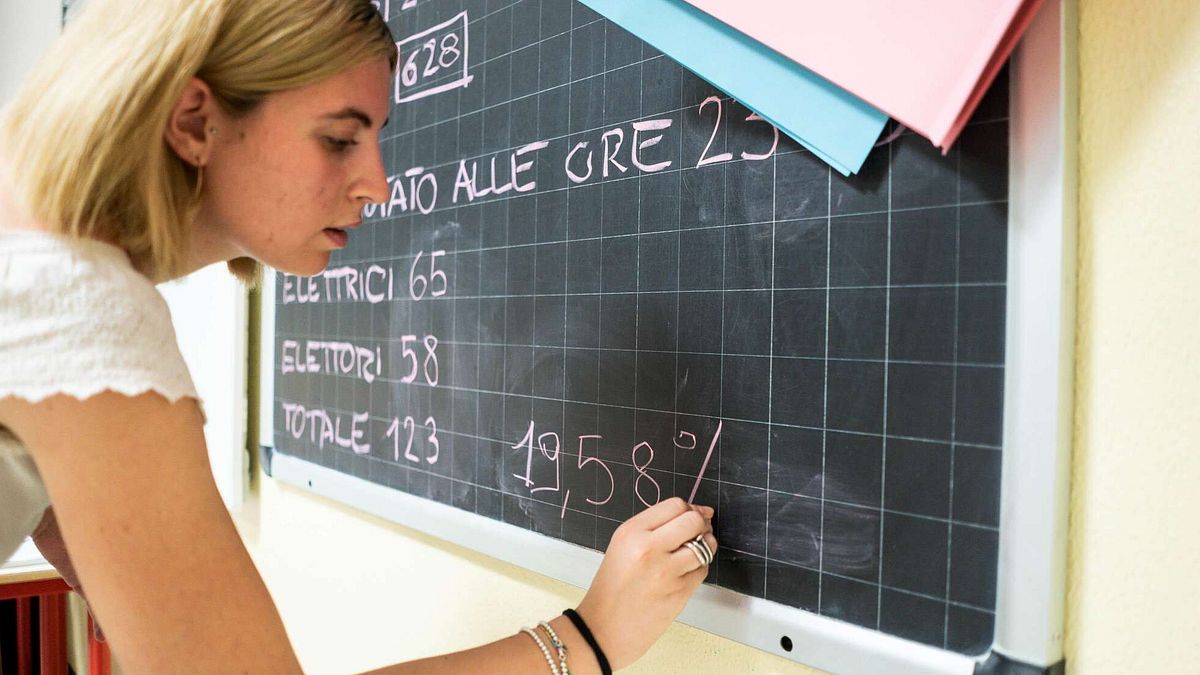 628
ALLE ORE 23
ELETTRICI 65
ELETTORI 58
TOTALE 123
19,58%